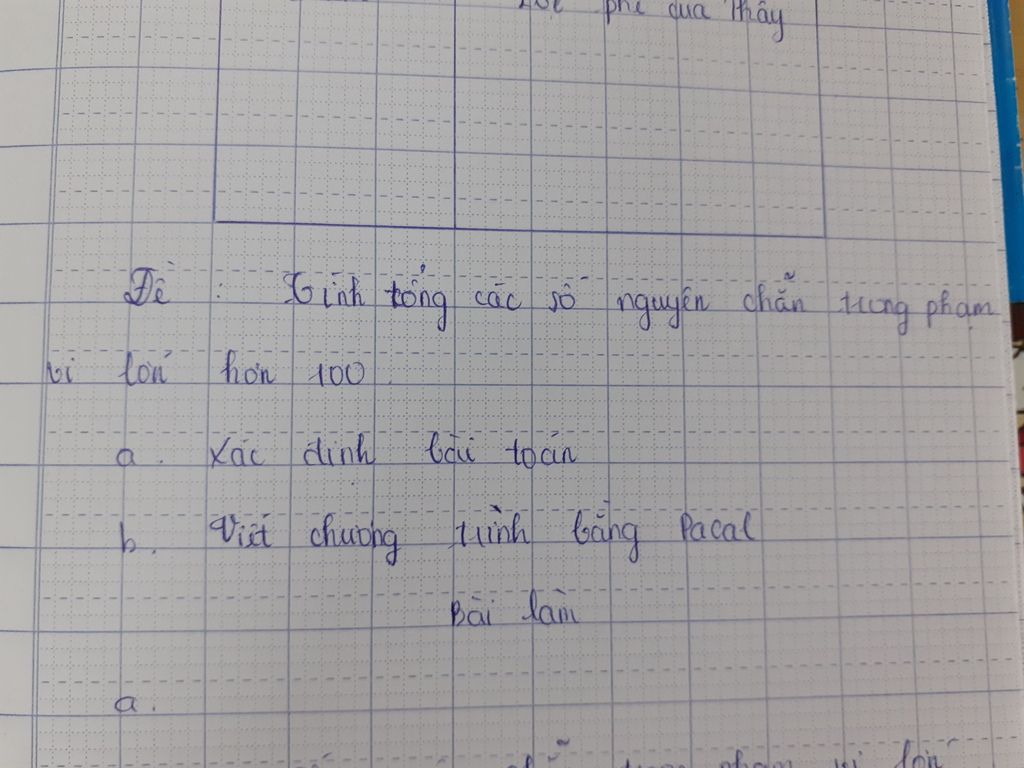 phí qua thầy
Đề : Tính tổng các số nguyên chẵn trong phạm
vi lớn hơn 100.
a. Xác định bài toán
b. Viết chương trình bằng Pacal
Bài làm
a.
phạm vi lớn